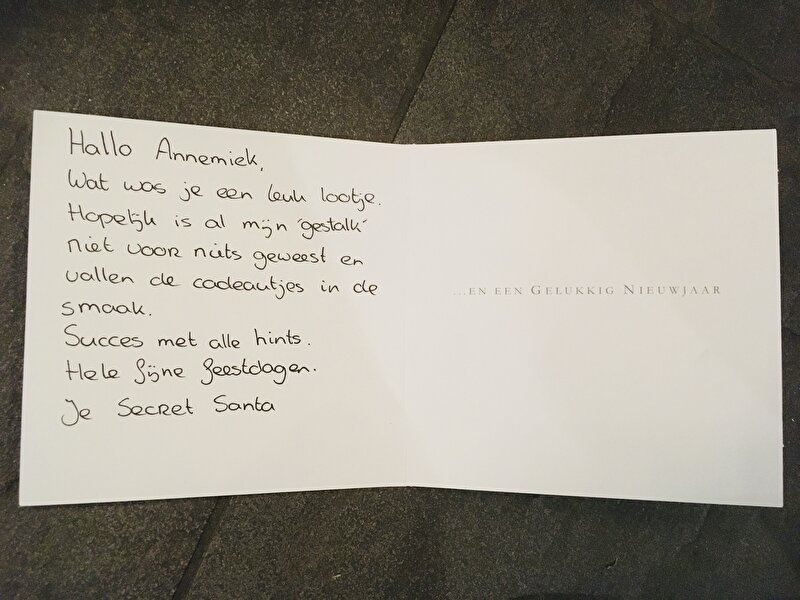 Hallo Annemiek,
Wat was je een leuk lootje.
Hopelijk is al mijn 'gestalk'
niet voor niets geweest en
vallen de cadeautjes in de
smaak.
Succes met alle hints.
Hele fijne feestdagen.
Je Secret Santa
...EN EEN GELUKKIG NIEUWJAAR